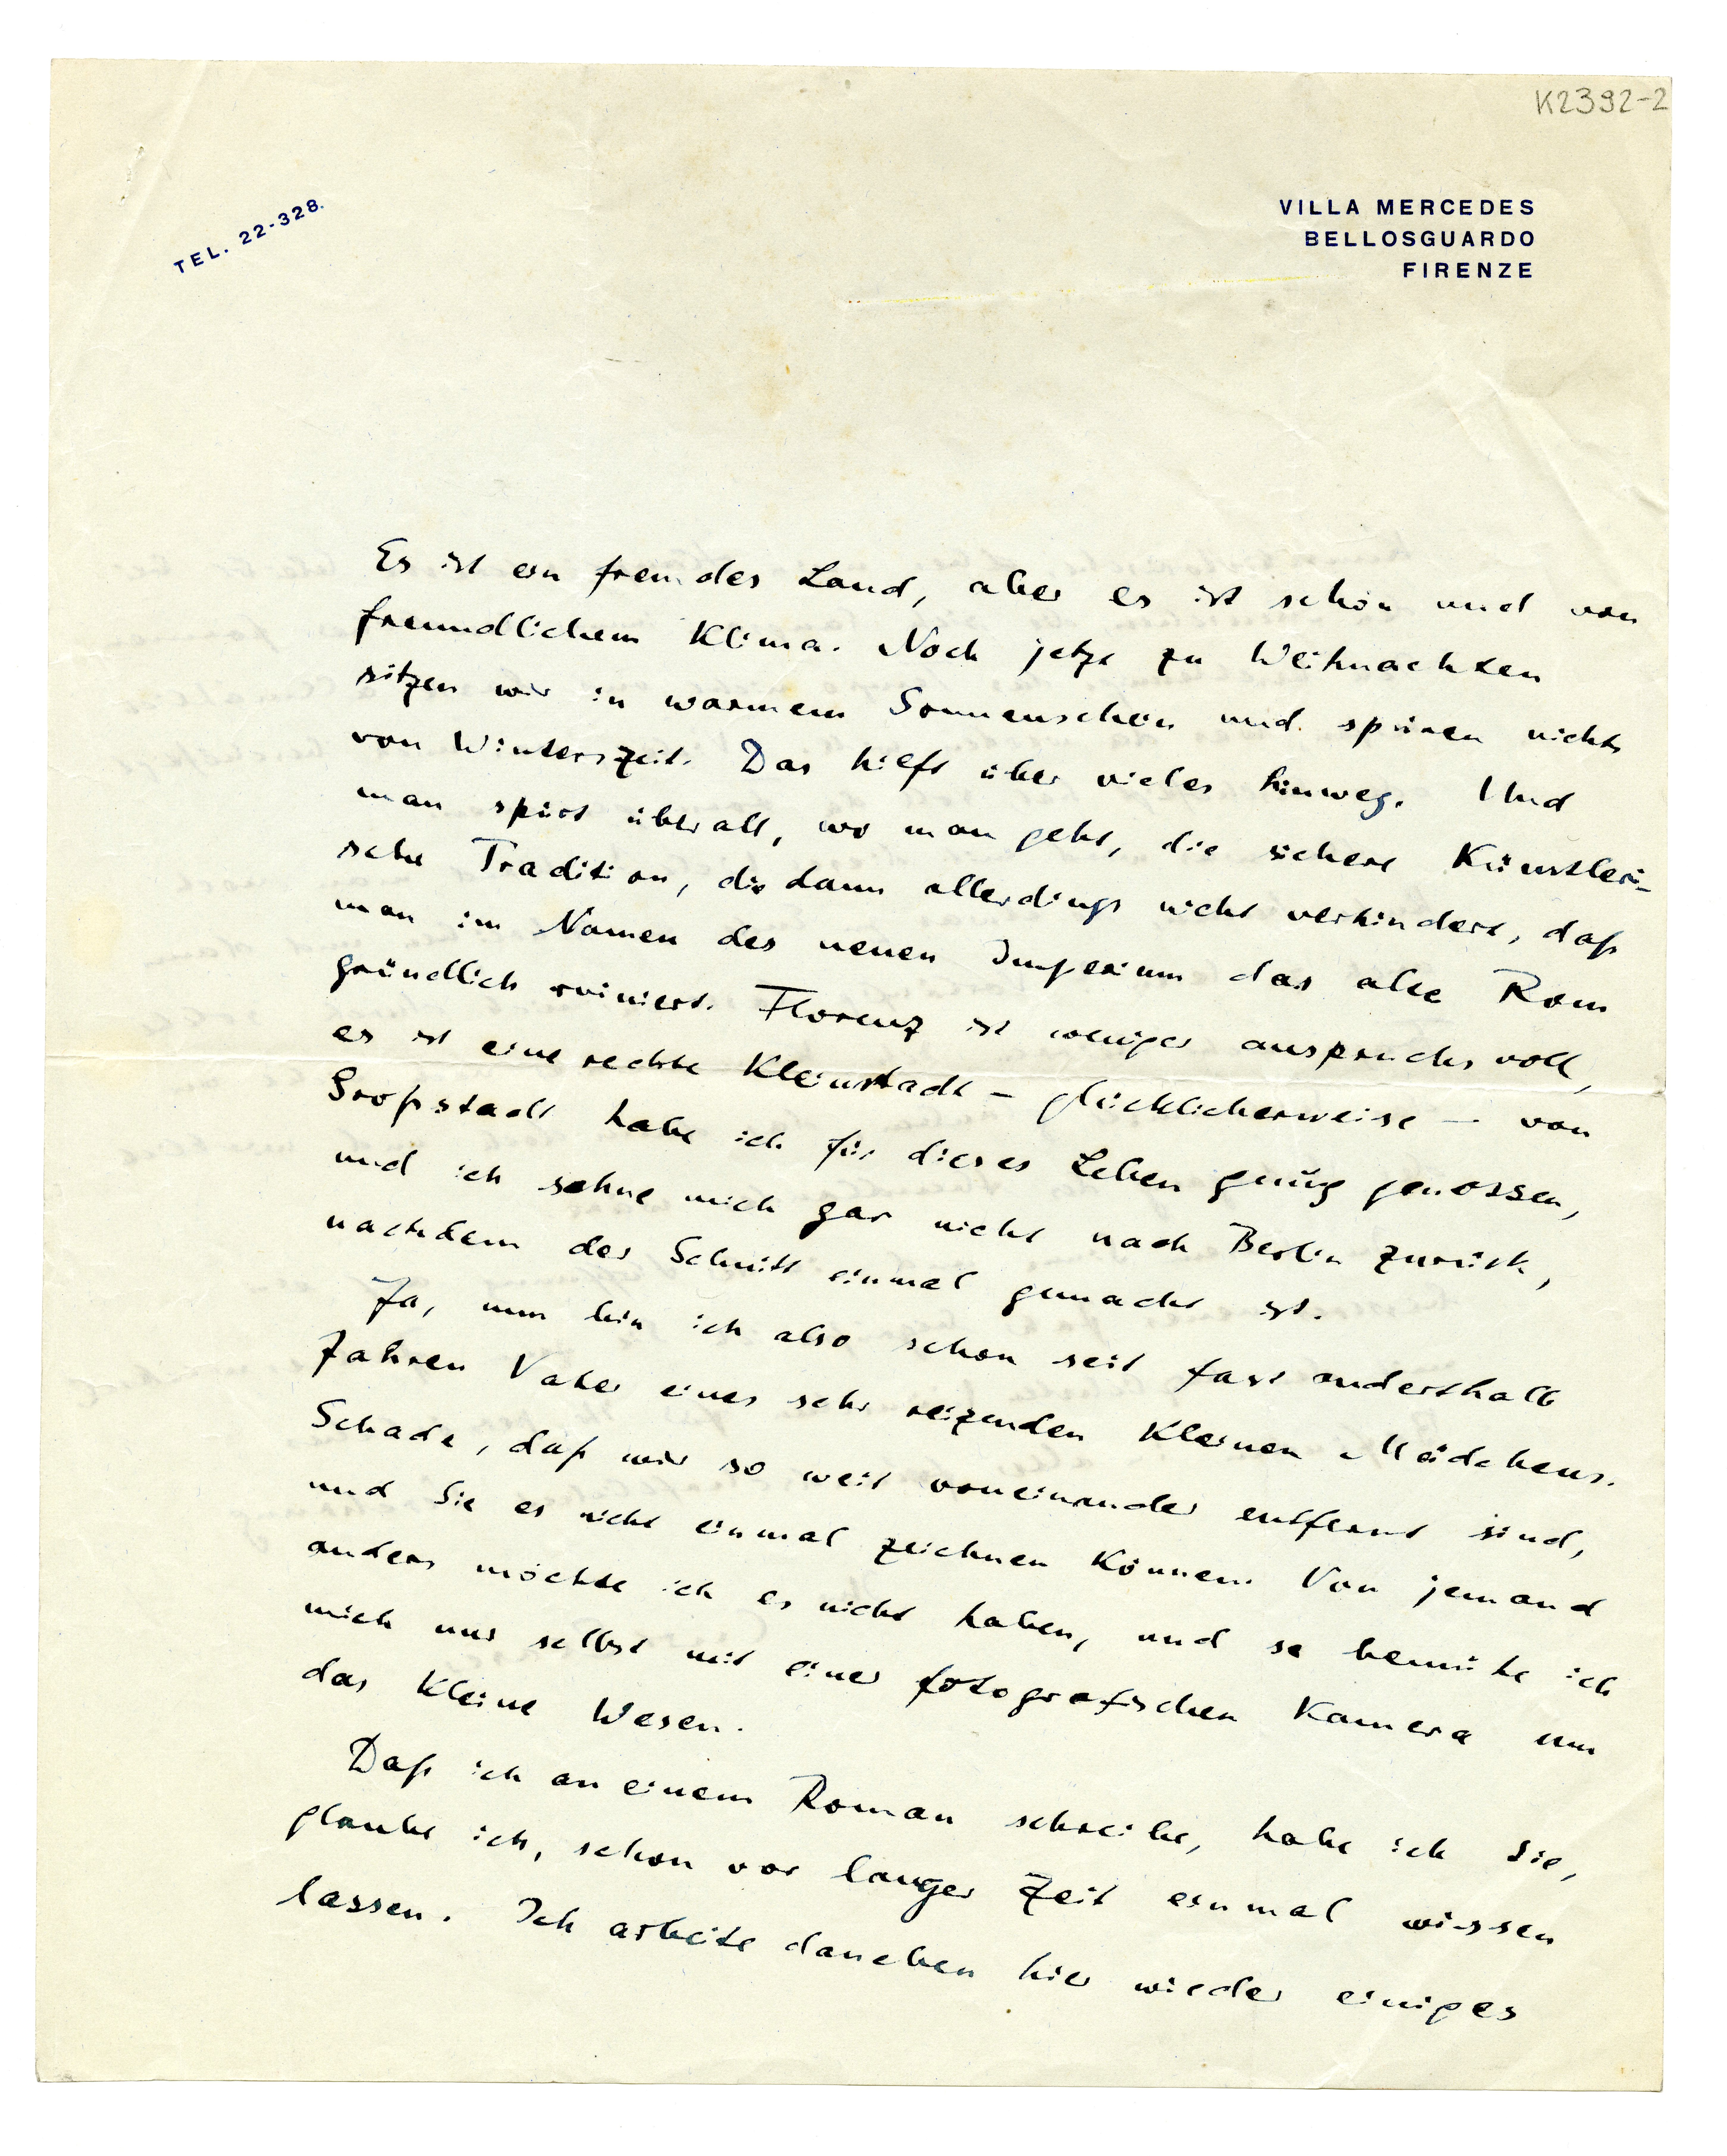 K2392-2
TEL. 22-328.
VILLA MERCEDES
BELLOSGUARDO
FIRENZE
Es ist ein fremdes Land, aber es ist schön und von
freundlichem Klima. Noch jetzt zu Weihnachten
sitzen wir in warmem Sonnenschein und spüren nichts
von Winterszeit. Das hilft über vieles hinweg. Und
man spürt überall, wo man geht, die sichere Künstleri-
sche Tradition, die dann allerdings nicht verhindert, daß
man im Namen des neuen Imperium das alte Rom
gründlich ruiniert. Florenz ist weniger anspruchsvoll,
es ist eine rechte Kleinstadt – glücklicherweise – von
Großstadt habe ich für dieses Leben genug genossen,
und ich sehne mich gar nicht nach Berlin zurück,
nachdem der Schnitt einmal gemacht ist.
Ja, nun bin ich also schon seit fast anderthalb
Jahren Vater eines sehr reizenden kleinen Mädchens.
Schade, daß wir so weit voneinander entfernt sind,
und Sie es nicht einmal zeichnen können. Von jemand
anders möchte ich es nicht haben, und so bemühe ich
mich nur selbst mit einer fotografischen Kamera um
das kleine Wesen.
Daß ich an einem Roman schreibe, habe ich Sie,
glaube ich, schon vor langer Zeit einmal wissen
lassen. Ich arbeite daneben hier wieder einiges